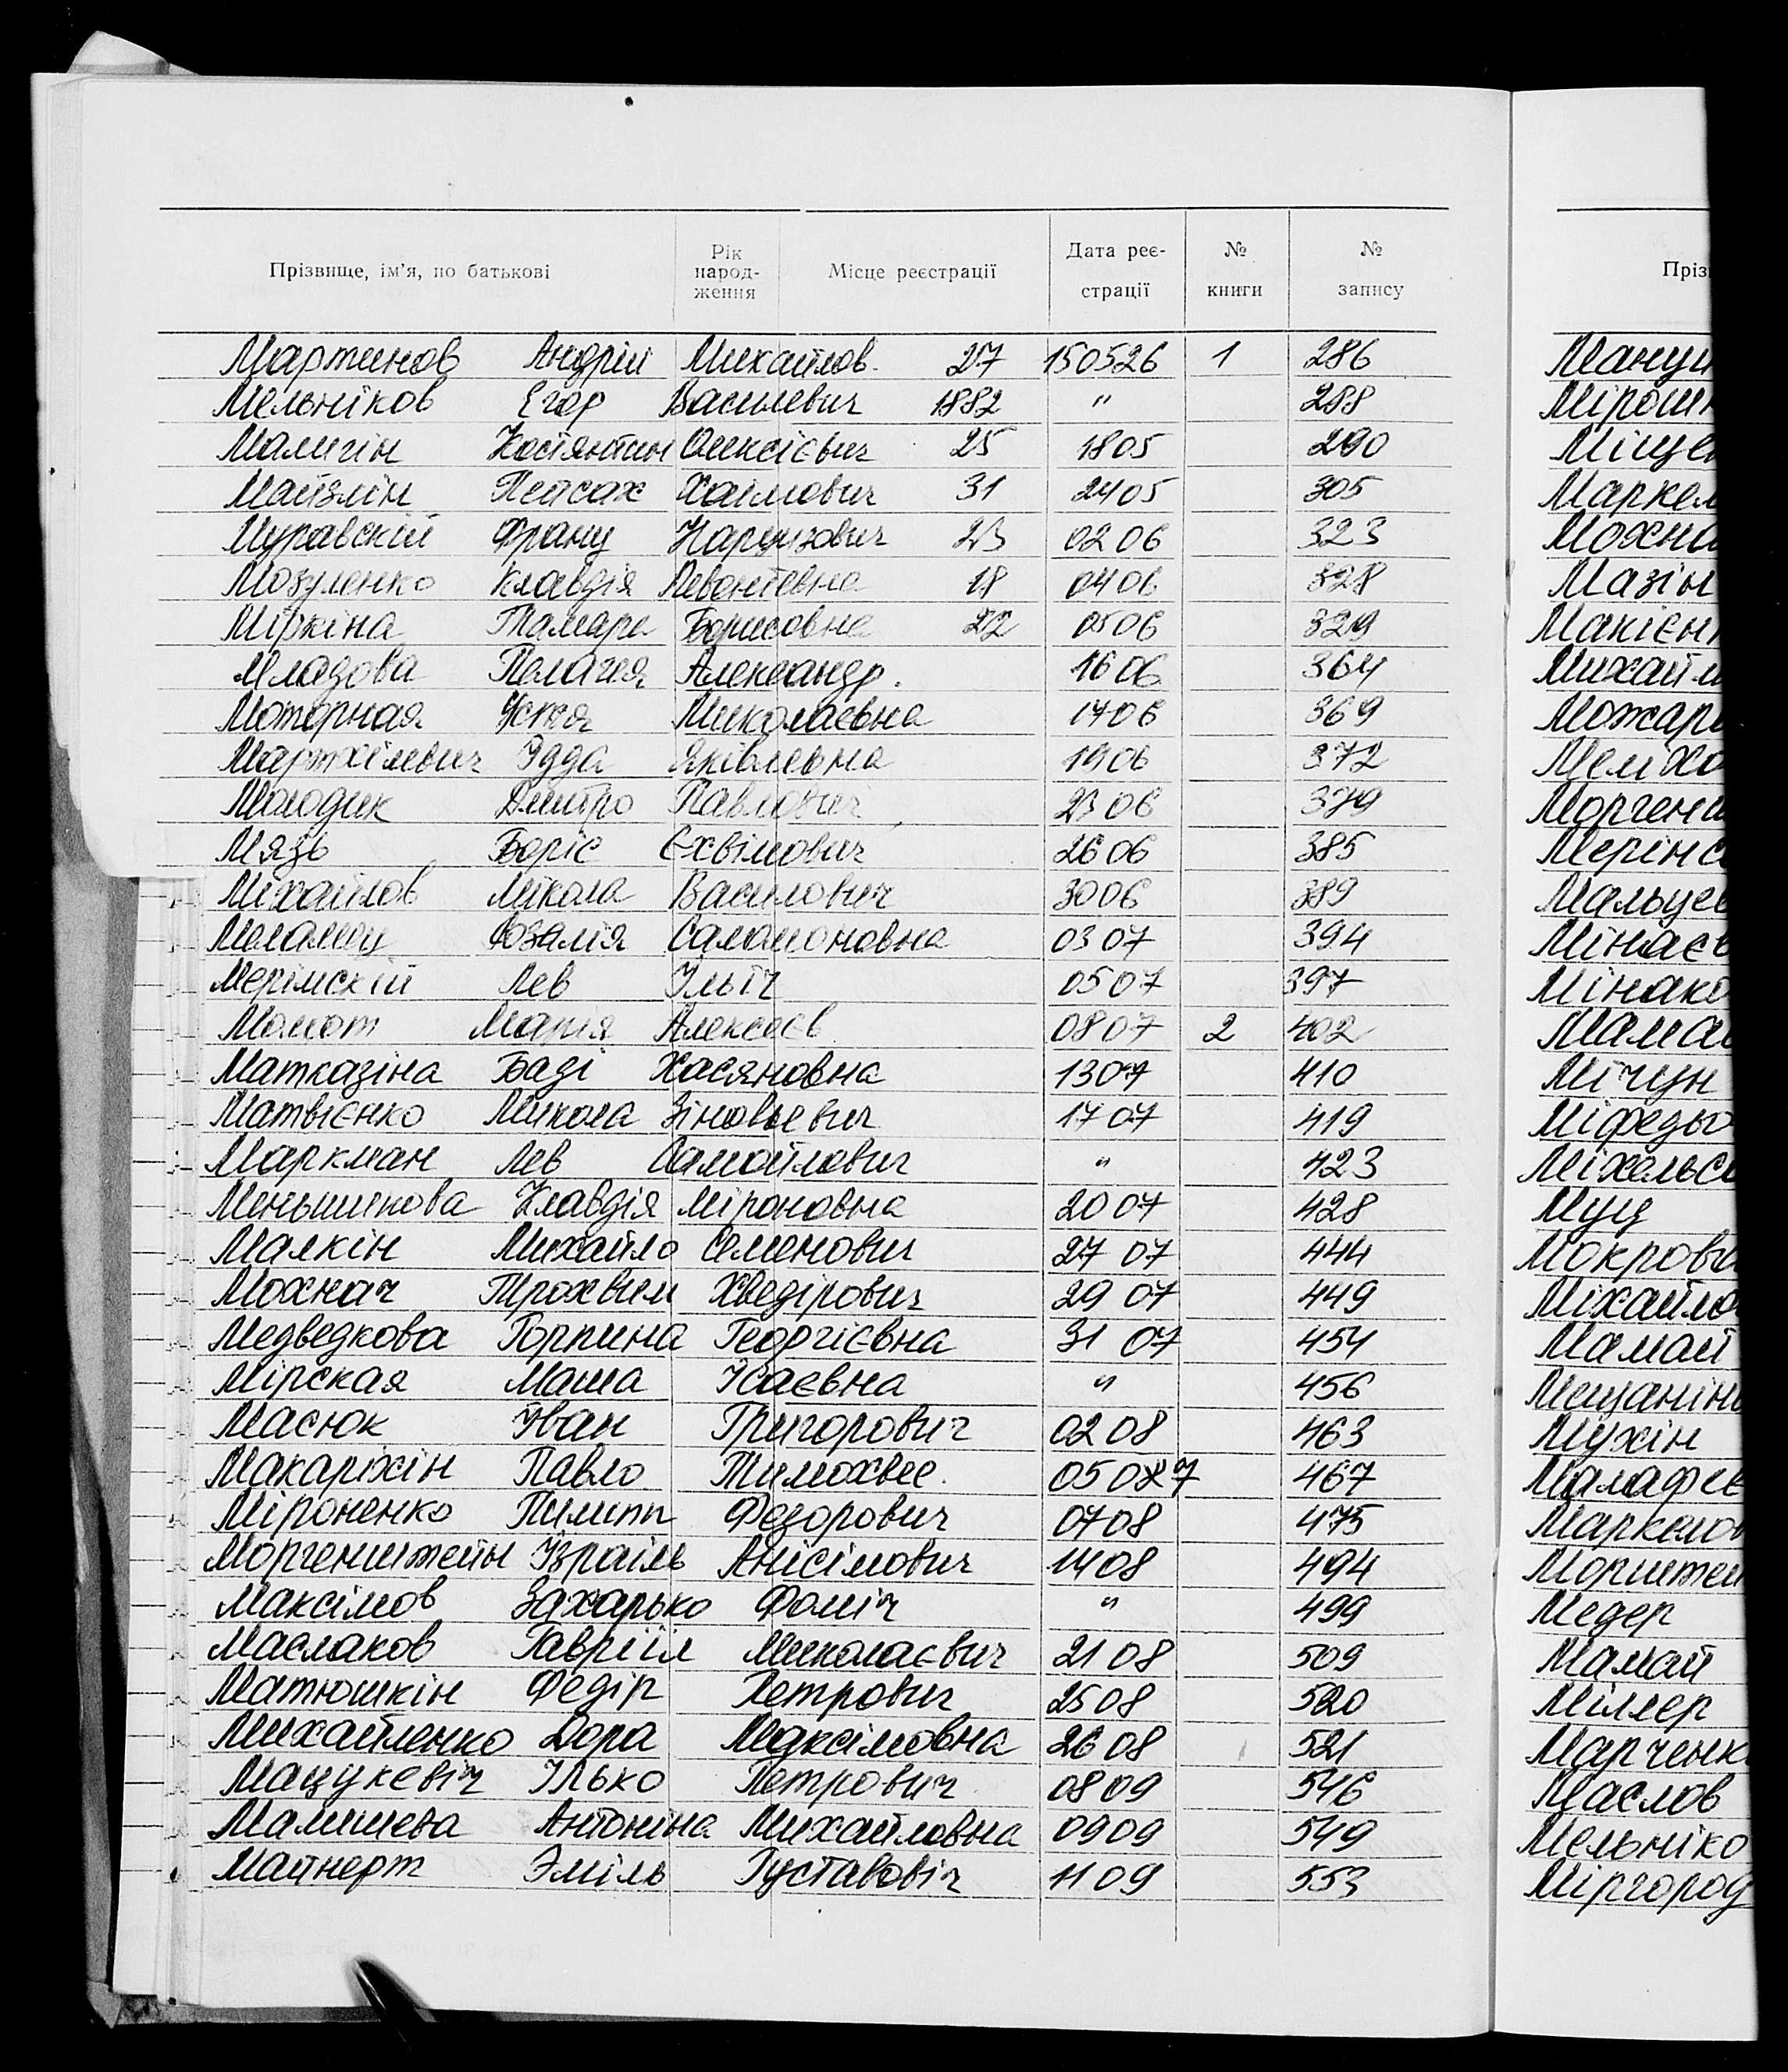 Прізвище, ім'я, по батькові Рік народ-ження Місце реєстрації Дата реє-страції № книги № запису
Мартинов Андрій Михайлов. 27 150526 1 286
Мельніков Егор Васильевич 1882 " 288
Малигін Костянтин Олексієвич 25 1805 290
Майзлін Пейсах Хаімович 31 2405 305
Муравскій Франц Нарцизович 23 0206 323
Мозуленко Клавдія Левонтевна 18 0406 328
Міркіна Тамара Борисовна 22 0506 329
Младова Пелагея Александр. 1606 364
Моторная Устя Миколаевна 1706 369
Едда Яківлевна 1906 372
Молодик Дмитро Павлович 2306 379
Мязь Боріс Єхвімович 2606 385
Міхайлов Мікола Василович 3006 389
Меламец Розалія Саламоновна 0307 394
Мерімскій Лев Ільіч 0507 397
Момот Марія Алексеєв 0807 2 402
Матказіна Баді Хасяновна 1307 410
Матвієнко Микола Зіновьевич 1707 419
Маркман Лев Самойлович " 423
Меньшикова Клавдія Міроновна 2007 428
Малкін Михайло Семенович 27 07 444
Мохнач Трохвим Хведірович 29 07 449
Медведкова Горпина Георгієвна 31 07 454
Мірская Маша Ісаєвна " 456
Масюк Іван Григорович 0208 463
Макаріхін Павло Тимохвее. 467
Міроненко Пилипп Федорович 0708 475
Моргенштейн Ізраіль Анісімович 1408 494
Максімов Захарько Фоміч " 499
Маслаков Гавріїл Миколаєвич 2108 509
Матюшкін Федір Петрович 2508 520
Михайленко Дора Максімовна 2608 521
Мацукевіч Ілько Петрович 0809 546
Малишева Антоніна Михайловна 0909 549
Майнерт Эміль Густавовіч 1109 553
Мазін
Муц
Мухін
Медер
Мамай
Міллер
Маслов